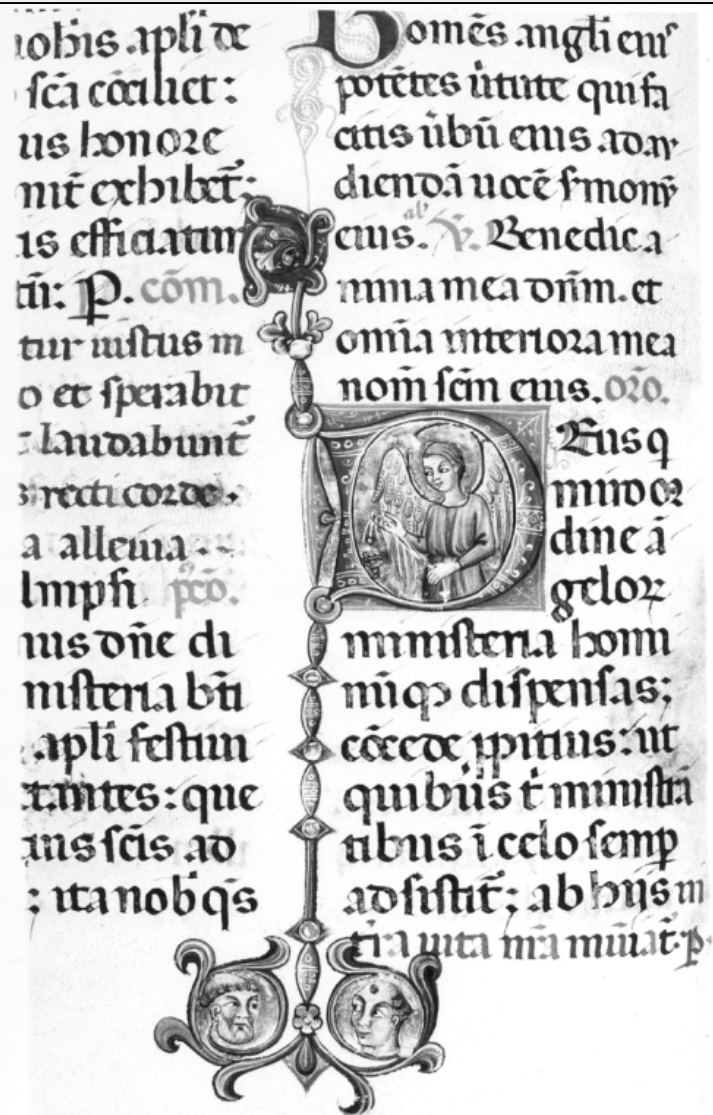 nobis apli de
sca cociliet:
us honore
nit exhibet:
is efficiatur
tn: P. com.
tur iustus in
o et sperabit
laudabunt
recti corde.
a alleuia
Impsi pco.
nus dne di
nisteria bti
apli festun
ctantes: que
scis ad
: ita nob qs
omes angli eius
potetes utute qui fa
citis ubu eius ad au
dienda uoce smonu
eius. ab V. Benedic a
nima mea dnm. et
omia interiora mea
nom scm eius. oro.
Deus q
miro or
dine a
gelorꝝ
ministeria homi
nuqꝫ dispensas;
cocede ꝓpitius: ut
quibus t ministra
tibus i celo semꝑ
ad sistit; ab hijs in
tra uita nra muniat. p.